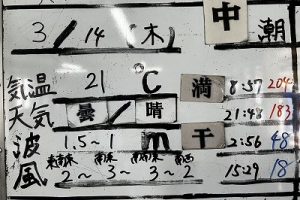 3/14(木) 中潮
気温 21℃ 満 8:57 204
天気 曇/晴 21:48 183
波 1.5~1m 干 2:56 48
東南東 南東 南南東 南西
風 2~3~3~2 15:29 18